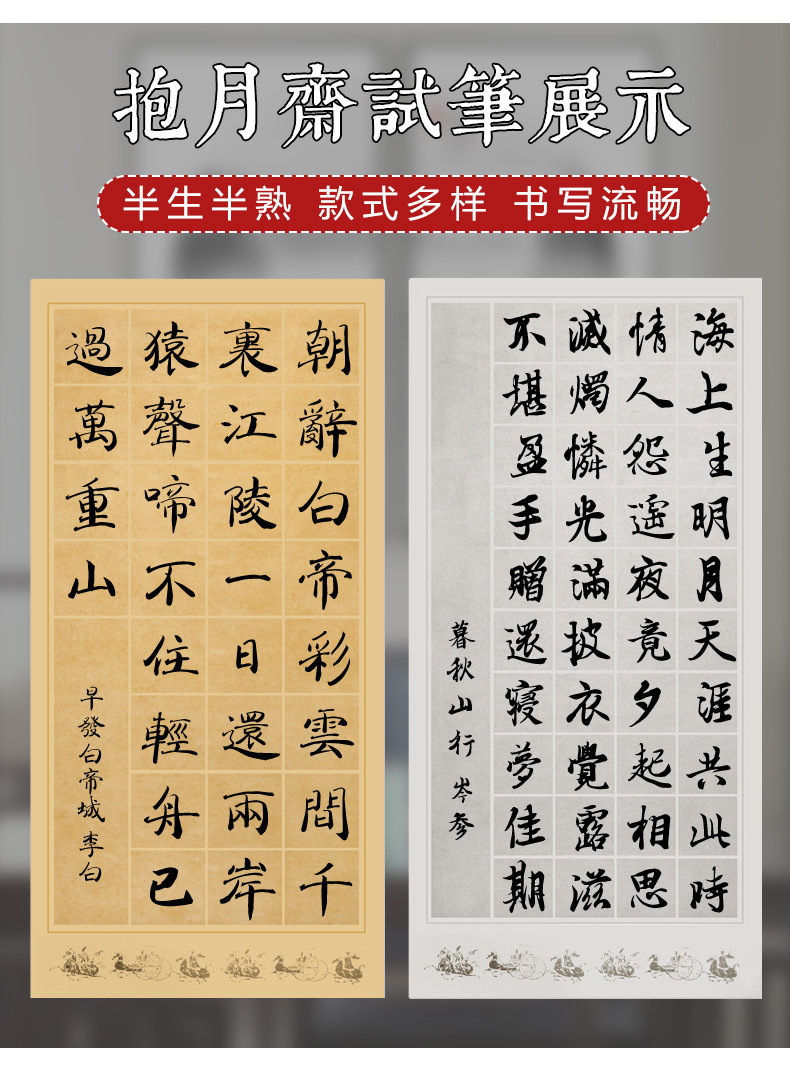 抱月齋試筆展示
半生半熟 款式多样 书写流畅
朝辭白帝彩雲間千
裏江陵一日還兩岸
猿聲啼不住輕舟已
過萬重山
早發白帝城 李白
海上生明月天涯共此時
情人怨遥夜竟夕起相思
滅燭憐光滿披衣覺露滋
不堪盈手贈還寝夢佳期
暮秋山行 岑參